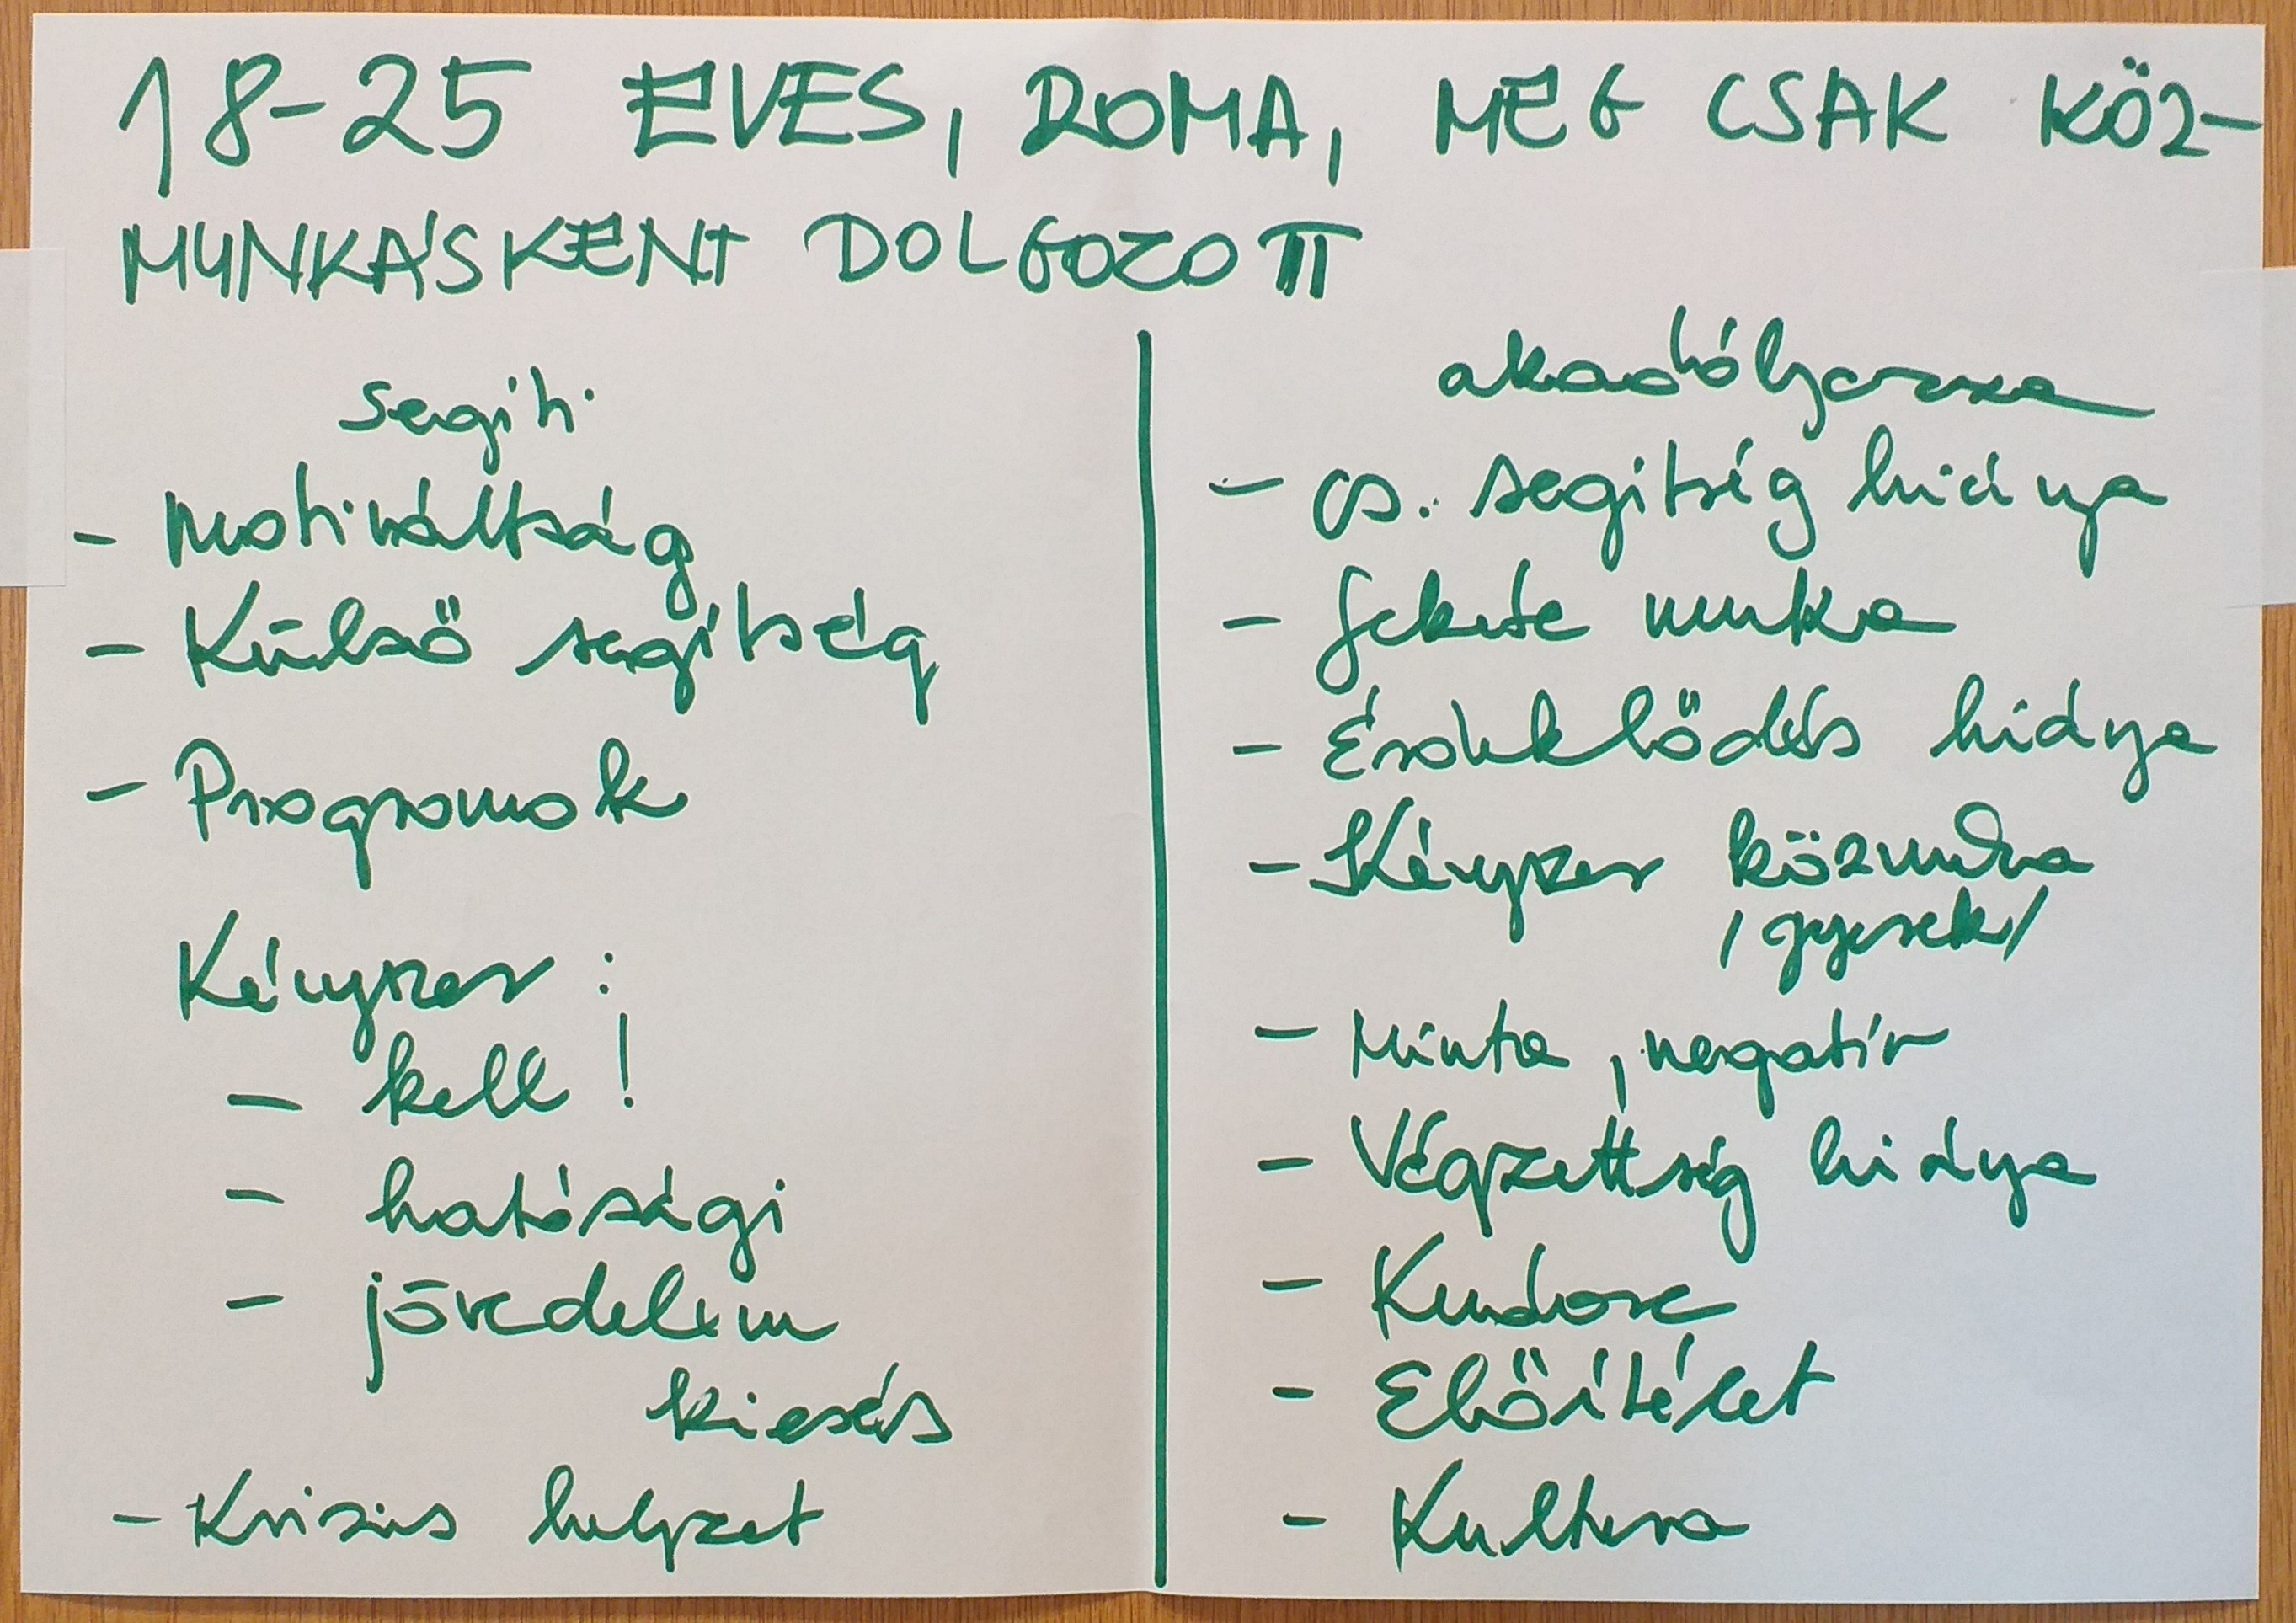 18-25 EVES, ROMA, MEG CSAK KÖZ-
MUNKÁSKENT DOLGOZOTT
segiti
- Motiváltság
- Külső segítség
- Programok
Kényszer :
- kell !
- hatósági
- jövedelem
kiesés
- Krizis helyzet
akadályozza
- cs. segítség hiánya
- fekete munka
- Érdeklődés hiánya
- Kényszer közmunka
/gyesek/
- Minta, negatív
- Végzettség hiánya
- Kudarc
- Előítélet
- Kultura